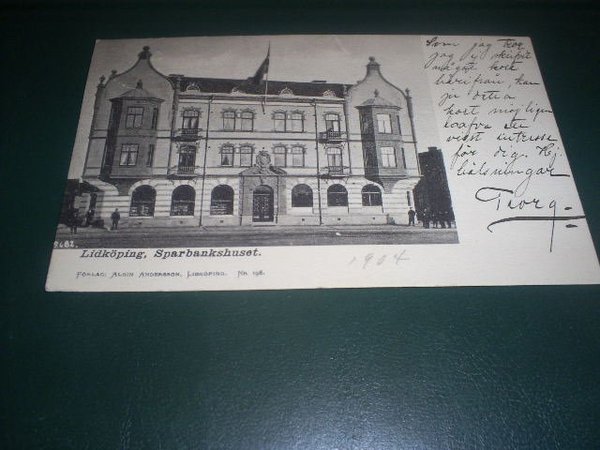 Som jag tror
jag ej skrifvit
något kort
härifrån kan
ju detta
kort möjligen
hafva ett
visst intresse
för dig. Hj.
hälsningar
Georg
2682.
Lidköping, Sparbankshuset.
1904
FÖRLAG: ALGIN ANDERSSON, LIDKÖPING. NR. 198.